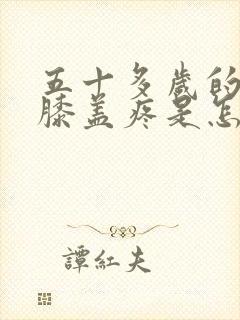 五十多歲的
膝蓋疼是怎
譚紅夫